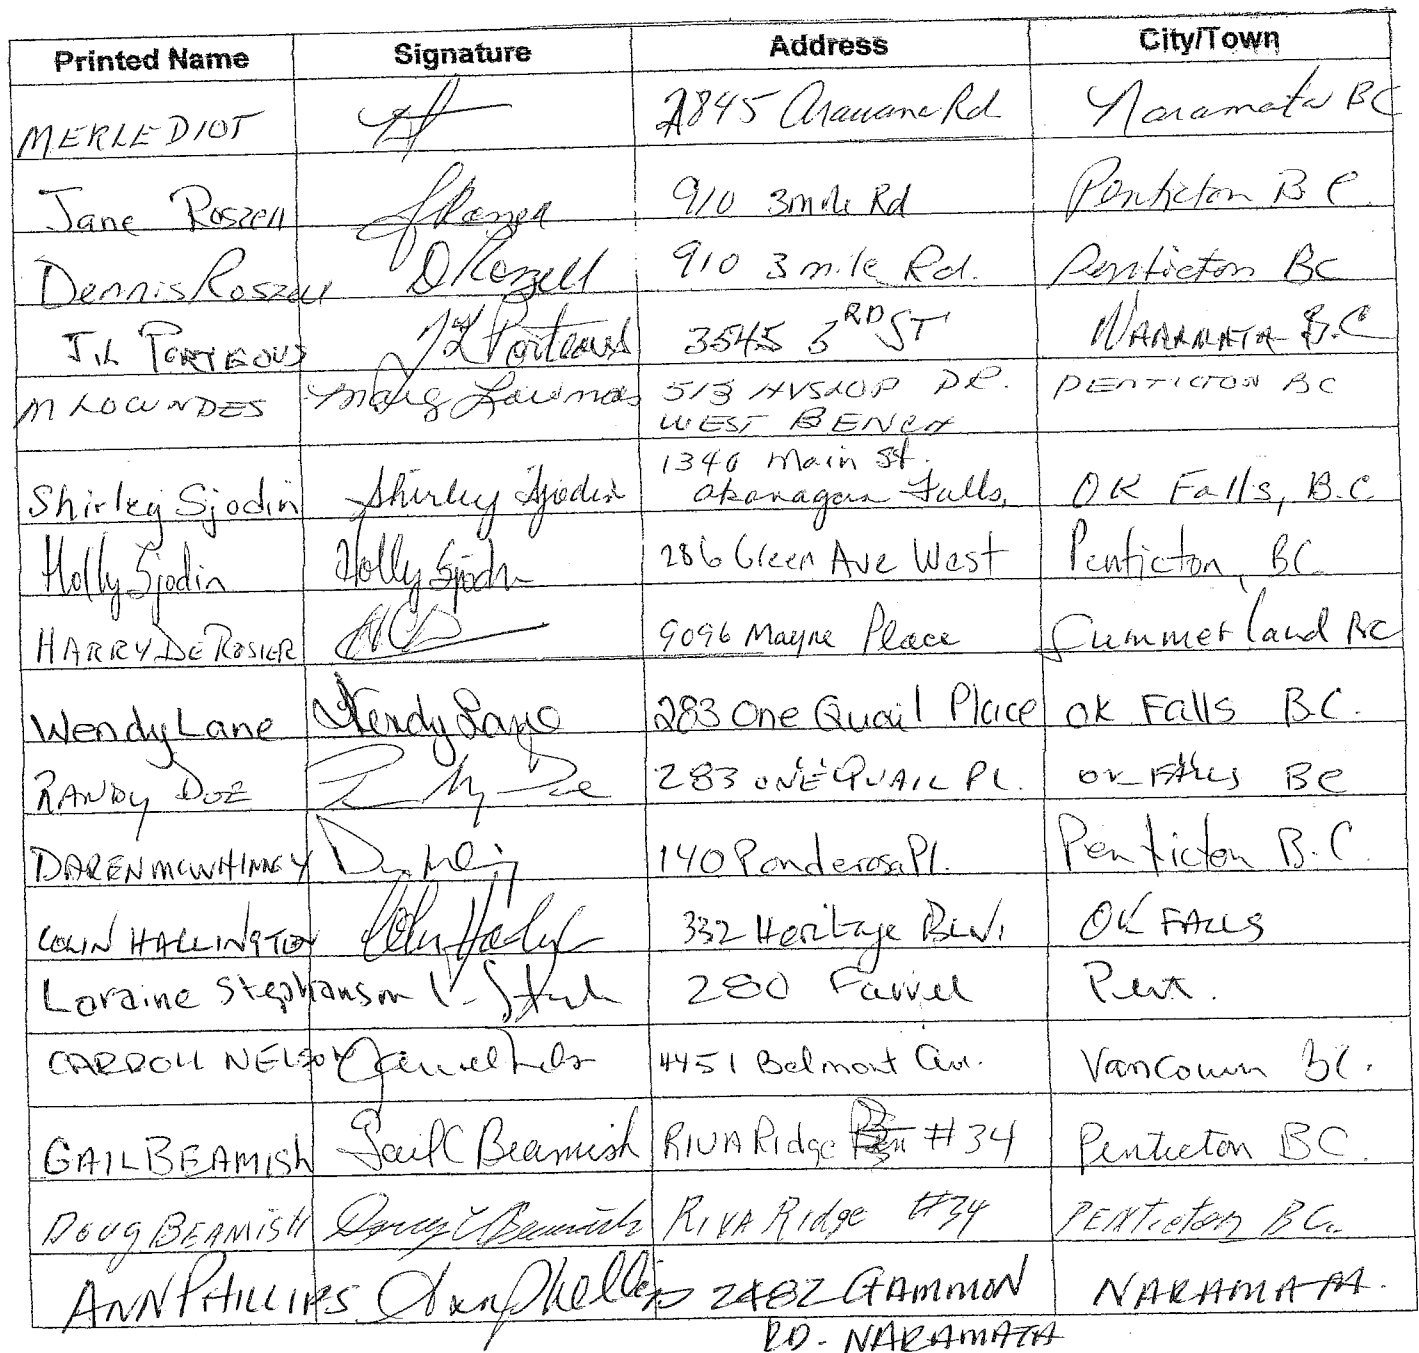 Printed Name Signature Address City/Town
MERLE DIOT 2845 Arawana Rd Naramata BC
Jane Roszell JRoszell 910 3 mile Rd Penticton B C.
Dennis Roszell D Roszell 910 3 mile Rd. Penticton BC
J.L PORTEOUS JL Porteous 3545 3RD ST NARAMATA B.C
M LOWNDES Marg Lowndes 513 HYSLOP DR. PENTICTON BC
WEST BENCH
1340 Main St.
Shirley Sjodin Shirley Sjodin Okanagan Falls, OK Falls, B.C
Holly Sjodin Holly Sjodin 286 Green Ave West Penticton, BC
HARRY DE ROSIER 9096 Mayne Place Summerland BC
Wendy Lane Wendy Lane 283 One Quail Place OK Falls B.C.
RANDY DOE 283 ONE QUAIL PL. OK FALLS BC
DAREN MCWHINNEY 140 Ponderosa Pl. Penticton B.C.
COLIN HALLINGTON 332 Heritage BLVD. OK FALLS
Loraine Stephanson L. Steph 280 Farrel Pent.
CARROLL NELSON 4451 Belmont Ave. Vancouver BC.
GAIL BEAMISH Gail C Beamish RIVA Ridge #34 Penticton BC.
DOUG BEAMISH Doug Beamish RIVA Ridge #34 PENTICTON BC.
ANN PHILLIPS Ann Phillips 2482 GAMMON NARAMATA.
RD. NARAMATA